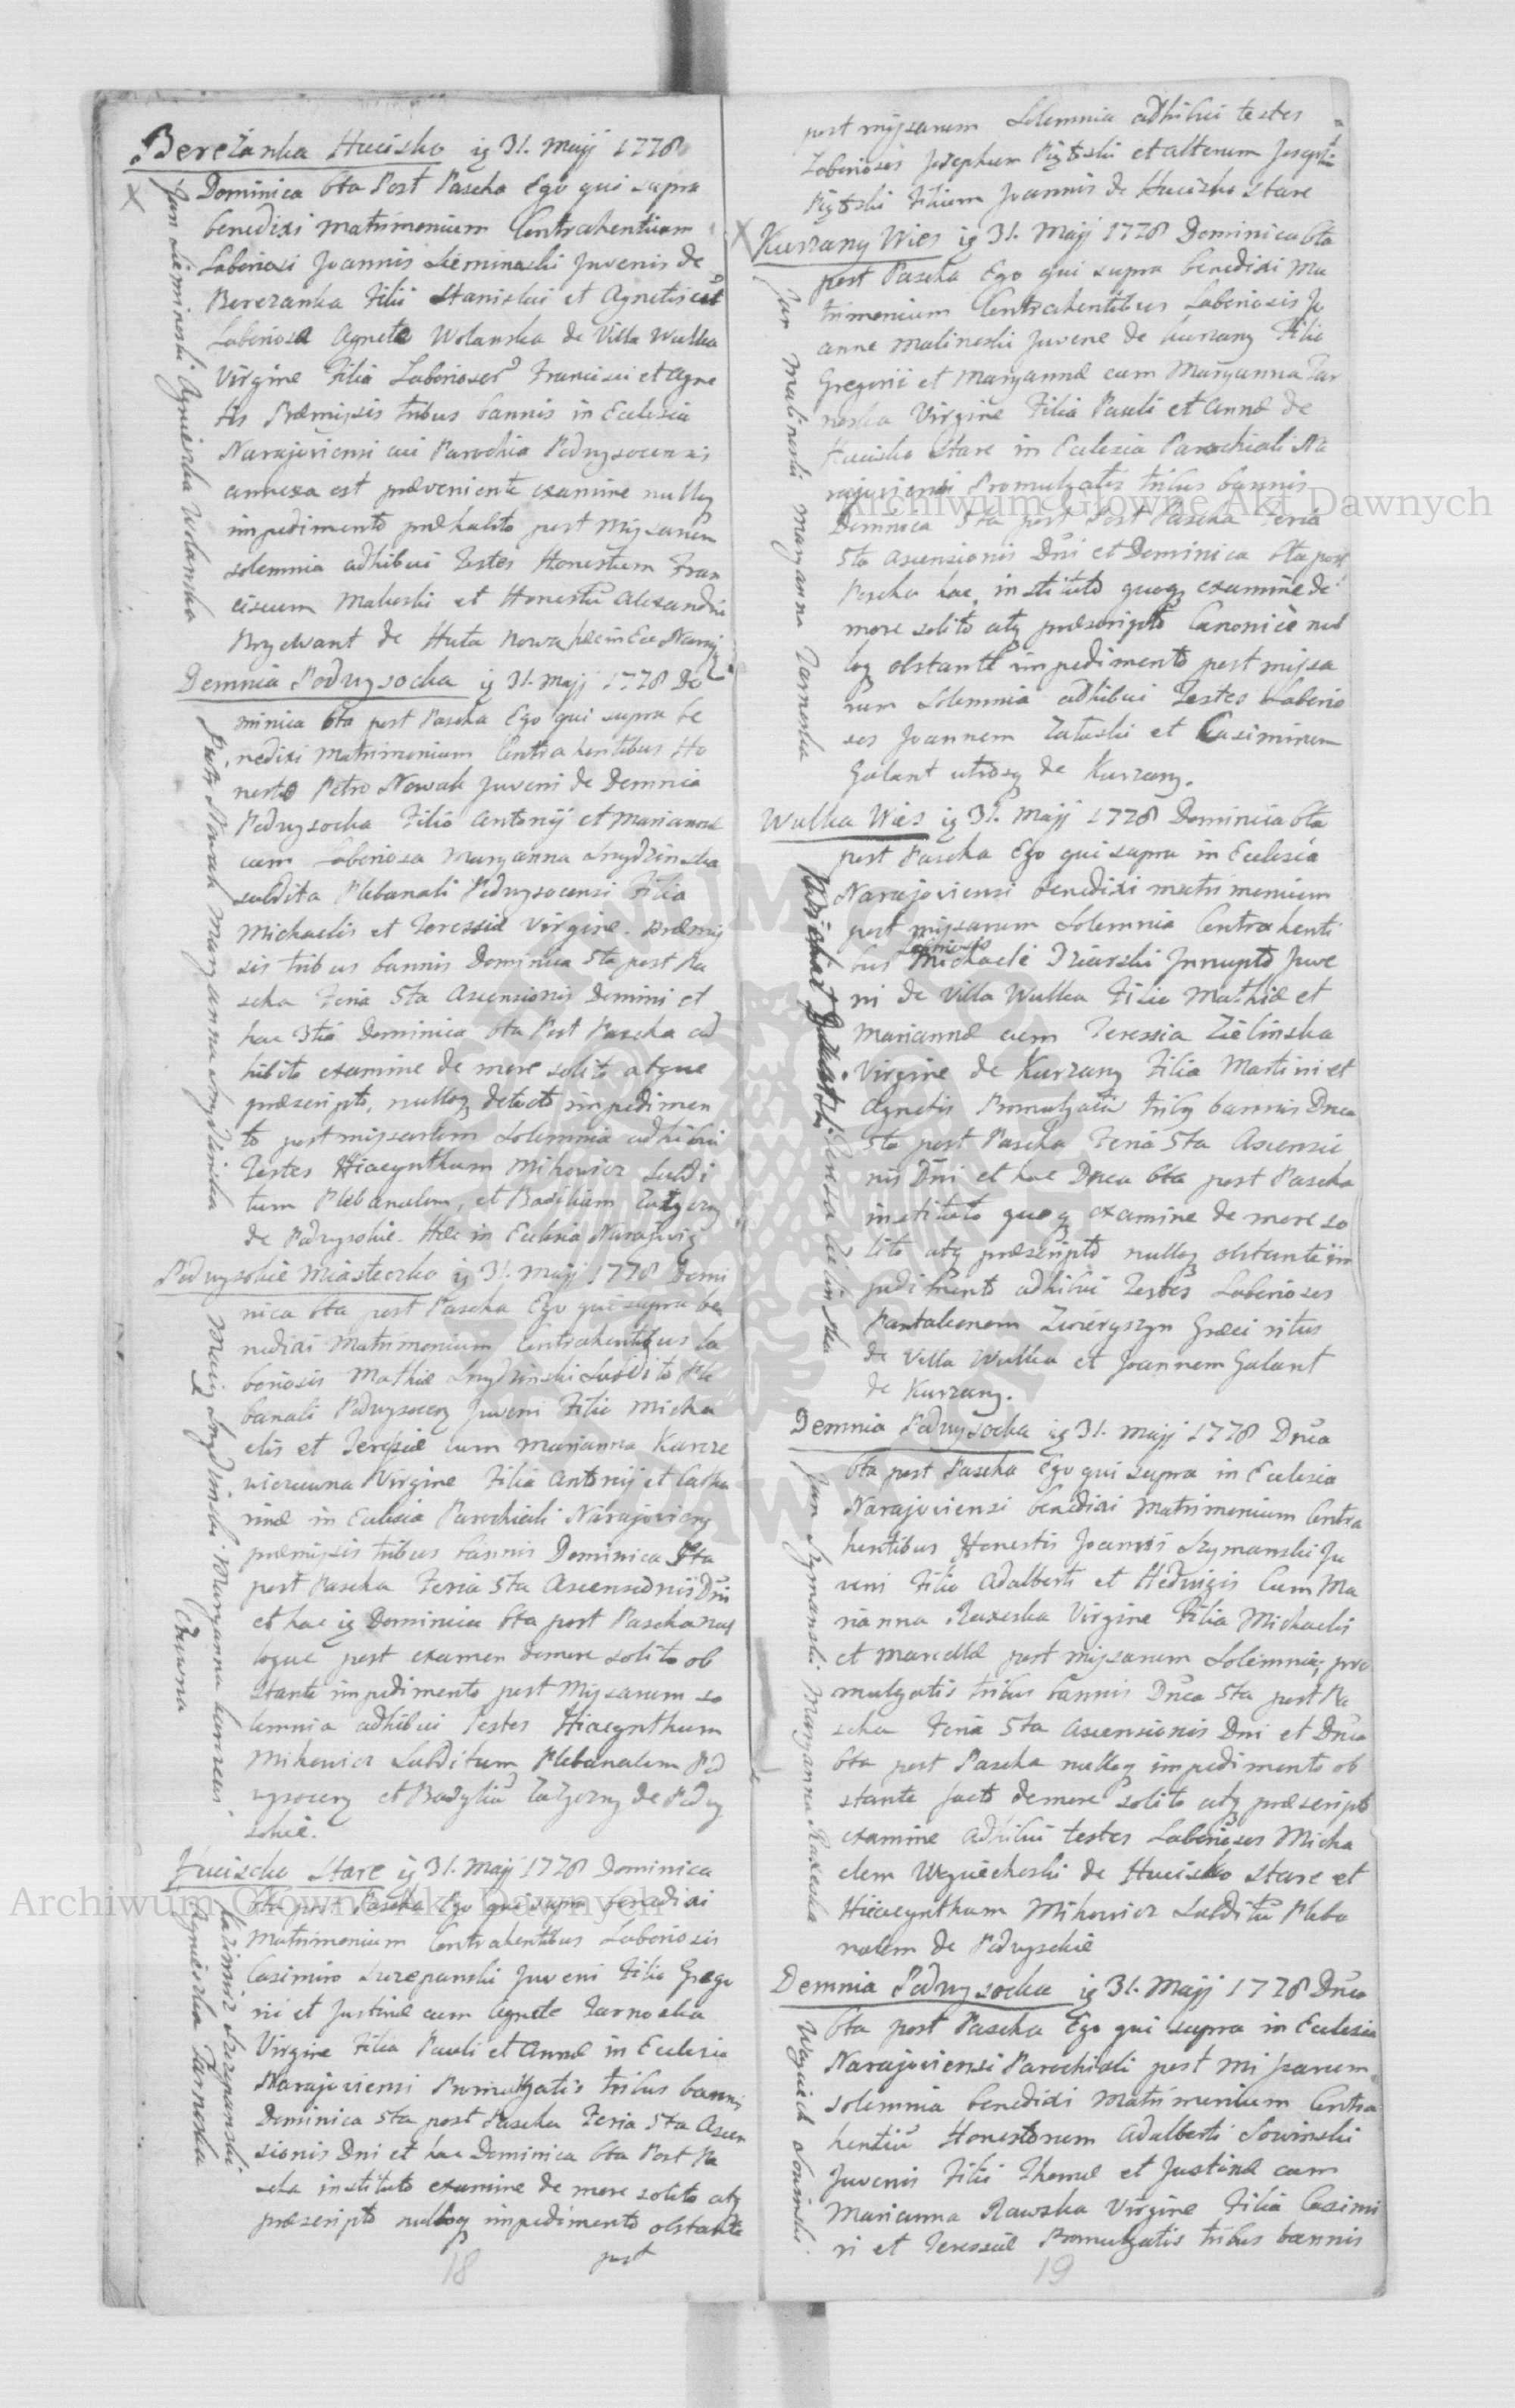 Bereżanka Hucisko ig 31. Maji 1778
Dominica 6ta Post Pascha Ego qui supra
benedixi matrimonium Contrahentium
Laboriosi Joannis Sieminski Juvenis de
Berezanka Filii Stanislai et Agnetis cū
Laboriosa Agnete Wolanska de Villa Wulka
Virgine Filia Laboriosor Francisci et Agne
tis Præmissis tribus bannis in Eclesia
Narajoviensi cui Parochia Podwysocensis
annexa est præveniente examine nulloq
impedimento præhabito post Missarum
solemnia adhibui Testes Honestum Fran
ciscum Maluski et Honestū Alexandrū
de Huta Nowa hæc in Ecc Naraj
Jan Sieminski Agnieszka Wolanska
Demnia Podwysocka ig 31. Maji 1778 Do
minica 6ta post Pascha Ego qui supra be
nedixi Matrimonium Contrahentibus Ho
nesto Petro Nowak Juveni de Demnia
Podwysocka Filio Antonij et Mariannæ
cum Laboriosa Maryanna Snydzinska
subdita Plebanali Podwysocensi Filia
Michaelis et Teressiæ Virgine. Præmis
sis tribus bannis Dominica 5ta post Pa
scha Feria 5ta Ascensionis Domini et
hac 3tia Dominica 6ta Post Pascha ad
hibito examine de more solito atque
præscripto, nulloq detecto impedimen
to post missarum Solemnia adhibui
Testes Hiacynthum Mihowicz Subdi
tum Plebanalem, et Basilium
de Podwysokie. Hæc in Eclesia Narajoviē
Piotr Nowak Maryanna Snydzinska
Podwysokie Miasteczko ig 31. Maji 1778 Domi
nica 6ta post Pascha Ego qui supra be
nedixi Matrimonium Contrahentibus La
boriosis Mathiæ Snydzinski Subdito Ple
banali Podwysocen Juveni Filio Micha
elis et Teressiæ cum Marianna Karcze
wiczuwna Virgine Filia Antonij et Catha
rinæ in Eclesia Parochiali Narajovien
præmissis tribus bannis Dominica 5ta
post Pascha Feria 5ta Ascensionis Dni
et hac ig Dominica 6ta post Pascha nul
loque post examen de more solito ob
stante impedimento post Missarum so
lemnia adhibui Testes Hiacynthum
Mihowicz Subditum Plebanalem Pod
wysocen et Basyliū de Podwy
sokie.
Maciey Snydzinski Maryanna Karczewi
czuwna
Hucisko Stare ig 31. Maji 1778 Dominica
6ta post Pascha Ego qui supra benedixi
Matrimonium Contrahentibus Laboriosis
Casimiro Szczepanski Juveni Filio Grego
rii et Justinæ cum Agnete Tarnoska
Virgine Filia Pauli et Annæ in Eclesia
Narajoviensi Promulgatis tribus bannis
Dominica 5ta post Pascha Feria 5ta Ascen
sionis Dni et hac Dominica 6ta Post Pa
scha instituto examine de more solito atq
præscripto nulloq impedimento obstante
post
Kazimierz Szczepanski
Agnieszka Tarnoska
18
post missarum Solemnia adhibui testes
Laboriosos Josephum Piętoski et alterum Joseph
Piętoski Filium Joannis de Hucisko Stare
Kurzany Wies ig 31. Maji 1778 Dominica 6ta
post Pascha Ego qui supra benedixi Ma
trimonium Contrahentibus Laboriosis Jo
anne Malinoski Juvene de Kurzany Filio
Gregorii et Maryannæ cum Maryanna Tar
noska Virgine Filia Pauli et Annæ de
Hucisko Stare in Eclesia Parochiali Na
rajoviensi Promulgatis tribus bannis
Dominica 5ta post Post Pascha Feria
5ta Ascensionis Dni et Dominica 6ta post
Pascha hac, instituto quoq examine de
more solito atq præscripto Canonicè nul
loq obstante impedimento post missa
rum Solemnia adhibui Testes Laborio
sos Joannem Zaluski et Casimirum
Galant utrosq de Kurzany.
Jan Malinoski Maryanna Tarnoska
Wulka Wies ig 31. Maji 1778 Dominica 6ta
post Pascha Ego qui supra in Eclesia
Narajoviensi benedixi matrimonium
post missarum Solemnia Contrahenti
bus Laborioso Michaele Dziarski Innupto Juve
ni de Villa Wulka Filio Mathiæ et
Mariannæ cum Teressia Zielinska
Virgine de Kurzany Filia Martini et
Agnetis Promulgatis tribq bannis Dnca
5ta post Pascha Feria 5ta Ascensio
nis Dni et hac Dnca 6ta post Pascha
instituto quoq examine de more so
lito atq præscripto nulloq obstante im
pedimento adhibui Testes Laboriosos
Pantaleonem Zwieryszyn Græci ritus
de Villa Wulka et Joannem Galant
de Kurzany.
Teressa Zielinska
Demnia Podwysocka ig 31. Maji 1778 Dnca
6ta post Pascha Ego qui supra in Eclesia
Narajoviensi benedixi Matrimonium Contra
hentibus Honestis Joanni Szymanski Ju
veni Filio Adalberti et Hedvigis Cum Ma
rianna Raxeska Virgine Filia Michaelis
et Marcellæ post missarum Solemnia, pro
mulgatis tribus bannis Dnca 5ta post Pa
scha Feria 5ta Ascensionis Dni et Dnca
6ta post Pascha nulloq impedimento ob
stante facto de more solito atq præscripto
examine adhibui testes Laboriosos Micha
elem Woyciechoski de Hucisko Stare et
Hiacynthum Mihowicz Subditū Pleba
nalem de Podwysokie
Jan Szymanski Maryanna Raxeska
Demnia Podwysocka ig 31. Maji 1778 Dnca
6ta post Pascha Ego qui supra in Eclesia
Narajoviensi Parochiali post missarum
solemnia benedixi Matrimonium Contra
hentiū Honestorum Adalberti Sowinski
Juvenis Filii Thomæ et Justinæ cum
Marianna Rawska Virgine Filia Casimi
ri et Teressiæ Promulgatis tribus bannis
Woyciech Sowinski
19
Archiwum Główne Akt Dawnych
Archiwum Główne Akt Dawnych